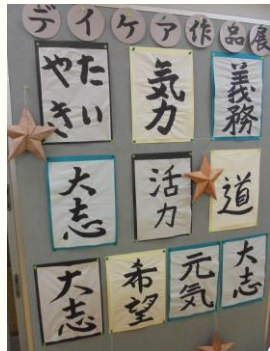 デイケア作品展
たい
やき
気力
義務
大志
活力
道
大志
希望
元気
大志